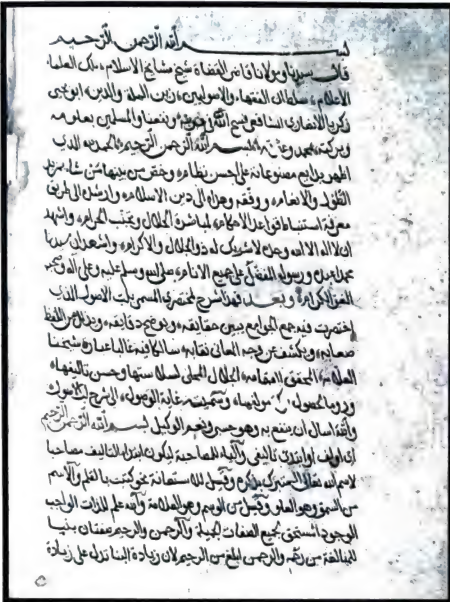 بسم الله الرحمن الرحيم
قال سيدنا ومولانا قاضي القضاة شيخ مشايخ الاسلام ملك العلماء
الأعلام سلطان الفقهاء والاصوليين زين الملة والدين ابو يحيى
زكريا الانصاري الشافعي فسح الله في مدته ونفعنا والمسلمين بعلومه
وبركته بمحمد وآله بسم الله الرحمن الرحيم الحمد لله الذي
اظهر بدايع مصنوعاته على احسن نظام وخص من بينها من شاء بمزيد
الطول والانعام ووفقه وهداه الى دين الاسلام وارشده الى طريق
معرفة استنباط قواعد الاحكام لمباشرة الحلال وتجنب الحرام واشهد
ان لا اله الا الله وحده لا شريك له ذو الجلال والاكرام واشهد ان سيدنا
محمدا عبده ورسوله المفضل على جميع الانام صلى الله وسلم عليه وعلى آله وصحبه
الغر الكرام وبعد فهذا شرح لمختصري المسمى بلب الاصول الذي
اختصرت فيه جمع الجوامع يبين حقايقه ويوضح دقايقه ويذلل من اللفظ
صعابه ويكشف عن وجه المعاني نقابه سالكا فيه غالبا عبارة شيخنا
العلامة المحقق الفهامة الجلال المحلي لسلاستها وحسن تاليفها
وروما لحصول بركة مؤلفها وسميته غاية الوصول الى شرح لب الاصول
والله اسال ان ينفع به وهو حسبي ونعم الوكيل بسم الله الرحمن الرحيم
اي اولف او ابتدئ تاليفي والباء للمصاحبة ليكون ابتداء التاليف مصاحبا
لاسم الله تعالى المتبرك بذكره وقيل للاستعانة نحو كتبت بالقلم والاسم
من السمو وهو العلو وقيل من الوسم وهو العلامة والله علم للذات الواجب
الوجود المستحق لجميع الصفات الجميلة والرحمن والرحيم صفتان بنيتا
للمبالغة من رحم والرحمن ابلغ من الرحيم لان زيادة البنا تدل على زيادة